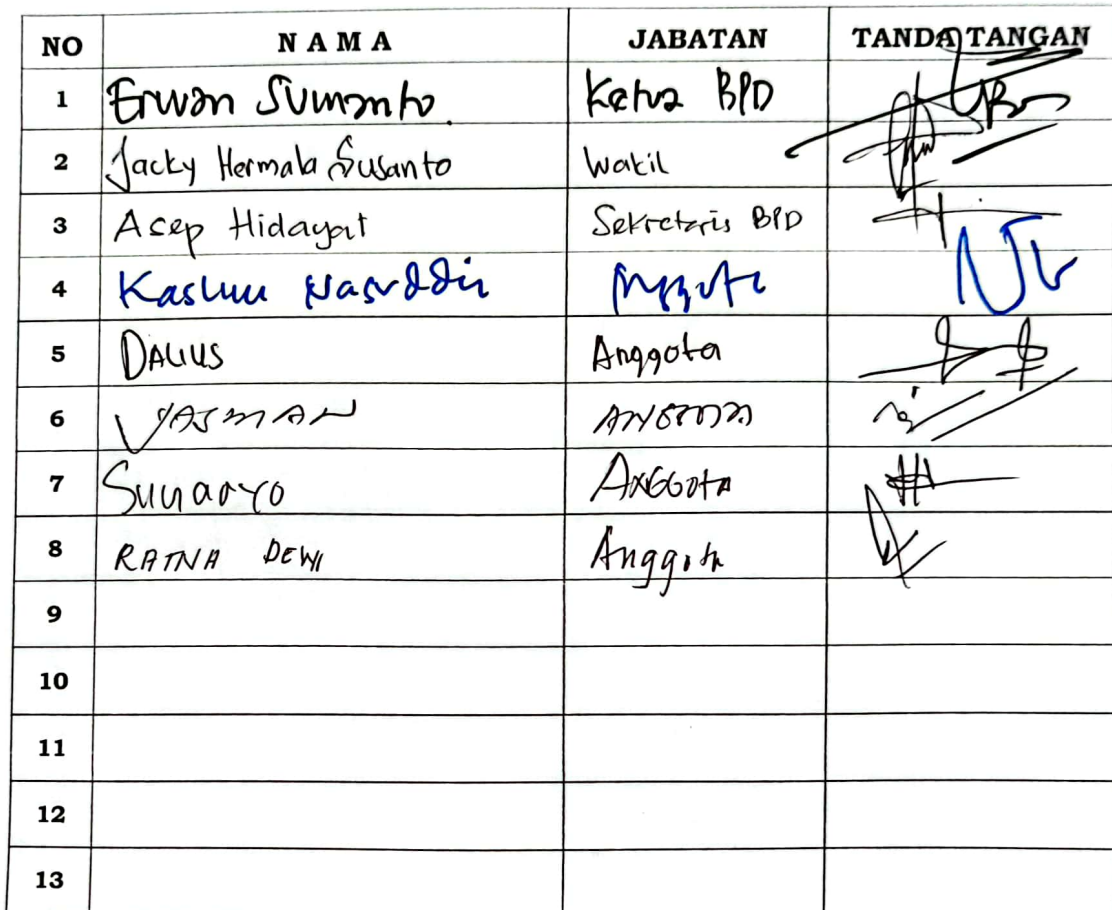 NO NAMA JABATAN TANDA TANGAN
1 Erwan Sumanto. Ketua BPD
2 Jacky Hermala Susanto Wakil
3 Asep Hidayat Sekretaris BPD
4 Nasruddin Anggota
5 DALIUS Anggota
6 YASMAN ANGGOTA
7 Sunaryo ANGGOTA
8 RATNA DEWI Anggota
9
10
11
12
13